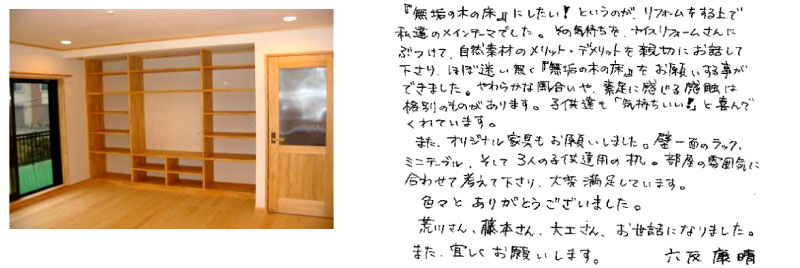 『無垢の木の床』にしたい！というのが、リフォームをする上で
私達のメインテーマでした。その気持ちを、ナイスリフォームさんに
ぶつけて、自然素材のメリット・デメリットを親切にお話して
下さり、ほぼ迷い無く『無垢の木の床』をお願いする事が
できました。やわらかな風合いや、素足に感じる感触は
格別のものがあります。子供達も「気持ちいい！」と喜んで
くれています。
また、オリジナル家具もお願いしました。壁一面のラック、
ミニテーブル、そして3人の子供達用の机。部屋の雰囲気に
合わせて考えて下さり、大変満足しています。
色々とありがとうございました。
荒川さん、藤本さん、大工さん、お世話になりました。
また、宜しくお願いします。 六反 康晴